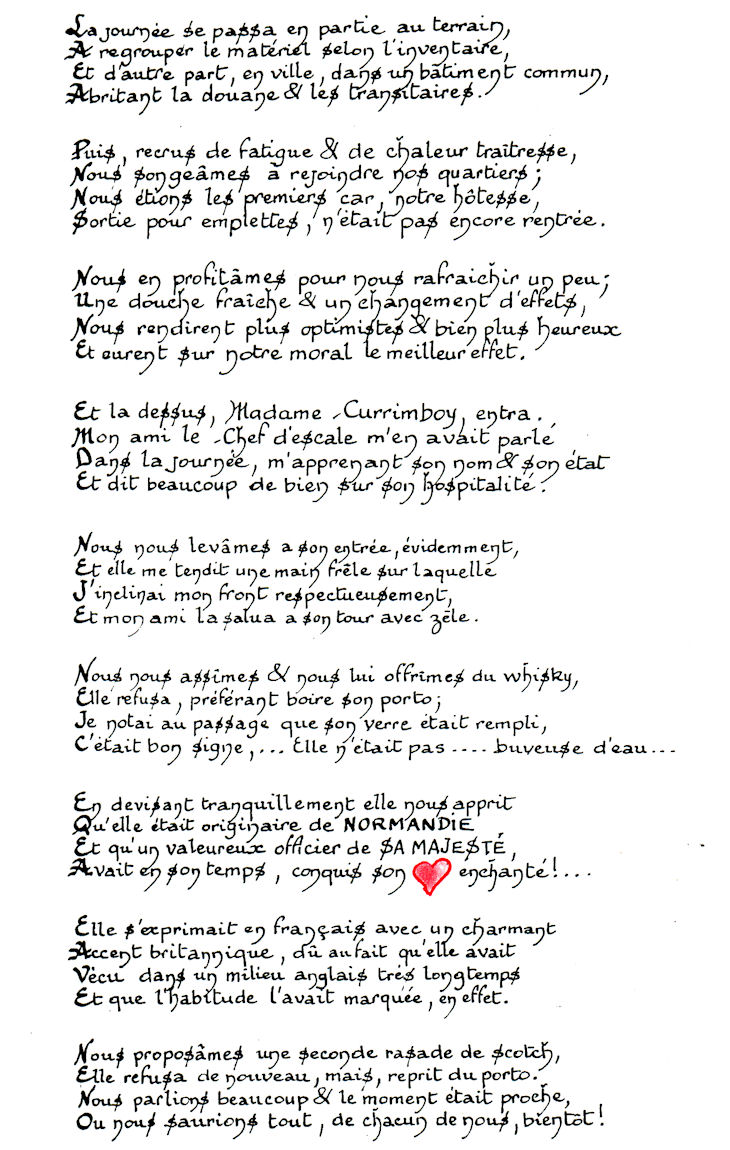 La journée se passa en partie au terrain,
A regrouper le matériel selon l'inventaire,
Et d'autre part, en ville, dans un bâtiment commun,
Abritant la douane & les transitaires.
Puis, recrus de fatigue & de chaleur traîtresse,
Nous songeâmes à rejoindre nos quartiers ;
Nous étions les premiers car, notre hôtesse,
Sortie pour emplettes, n'était pas encore rentrée.
Nous en profitâmes pour nous rafraichir un peu;
Une douche fraîche & un changement d'effets,
Nous rendirent plus optimistes & bien plus heureux
Et eurent sur notre moral le meilleur effet.
Et la dessus, Madame Currimboy, entra.
Mon ami le Chef d'escale m'en avait parlé
Dans la journée, m'apprenant son nom & son état
Et dit beaucoup de bien sur son hospitalité.
Nous nous levâmes a son entrée, évidemment,
Et elle me tendit une main frêle sur laquelle
J'inclinai mon front respectueusement,
Et mon ami la salua a son tour avec zèle.
Nous nous assîmes & nous lui offrîmes du whisky,
Elle refusa, préférant boire son porto;
Je notai au passage que son verre était rempli,
C'était bon signe,... Elle n'était pas .... buveuse d'eau...
En devisant tranquillement elle nous apprit
Qu'elle était originaire de NORMANDIE
Et qu'un valeureux officier de SA MAJESTÉ,
Avait en son temps, conquis son ❤ enchanté!...
Elle s'exprimait en français avec un charmant
Accent britannique, dû au fait qu'elle avait
Vécu dans un milieu anglais très longtemps
Et que l'habitude l'avait marquée, en effet.
Nous proposâmes une seconde rasade de scotch,
Elle refusa de nouveau, mais, reprit du porto.
Nous parlions beaucoup & le moment était proche,
Ou nous saurions tout, de chacun de nous, bientôt!